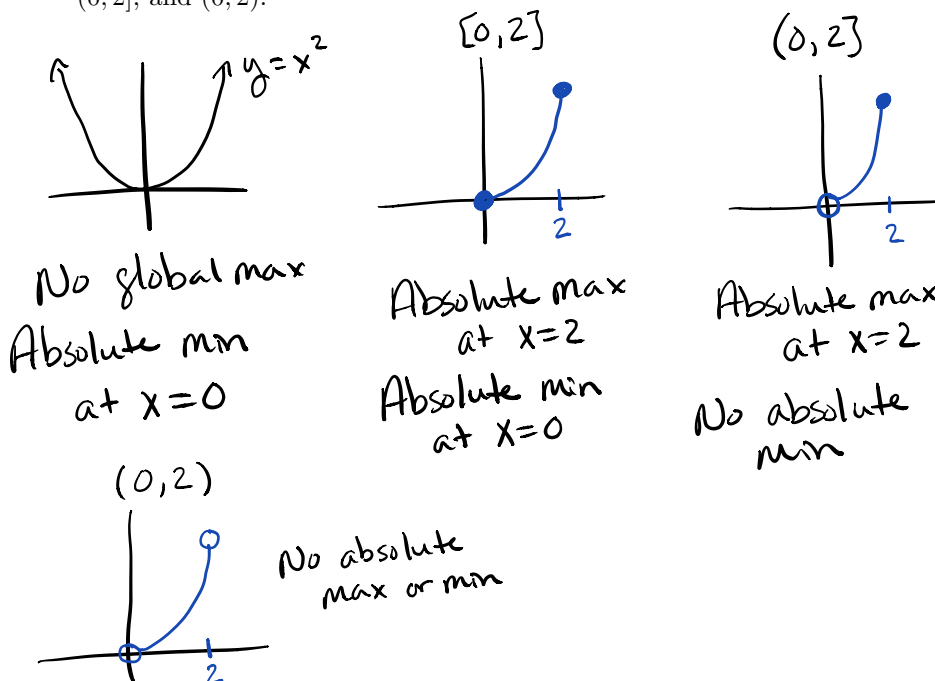 (0, 2], and (0, 2).
y = x²
No global max
Absolute min
at x = 0
[0, 2]
2
Absolute max
at x = 2
Absolute min
at x = 0
(0, 2]
2
Absolute max
at x = 2
No absolute
min
(0, 2)
2
No absolute
max or min